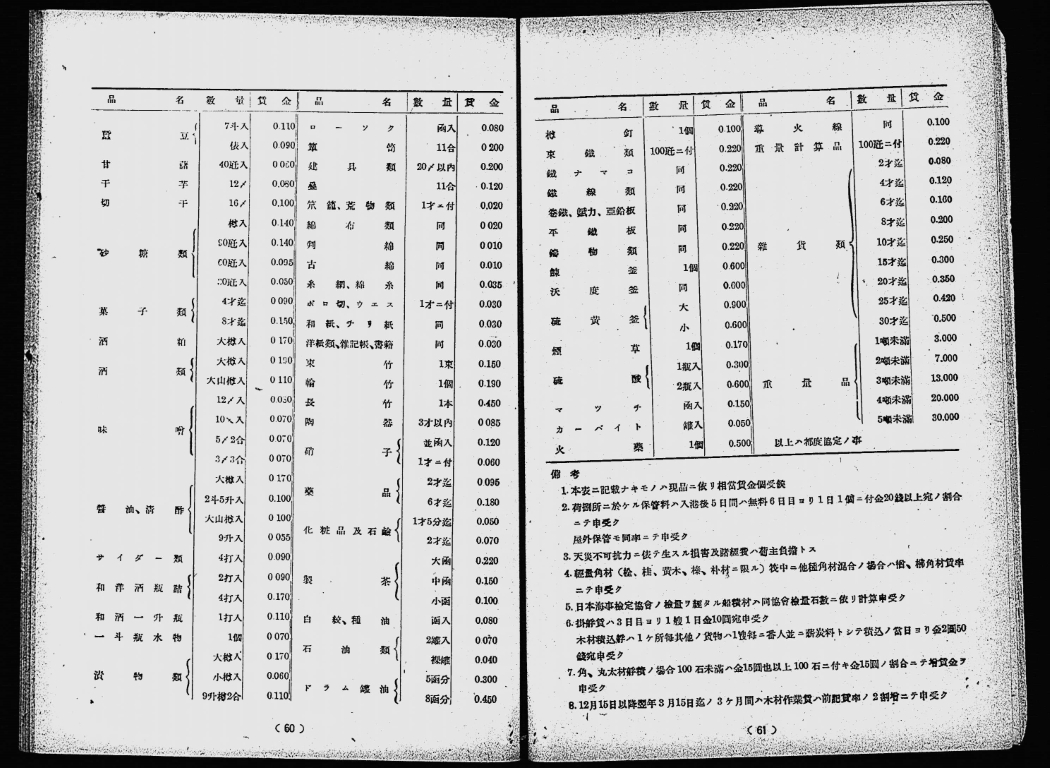 品 名 數 量 賃 金 品 名 數 量 賃 金
豆 7斗入 0.110
俵入 0.090
甘 藷 40瓩入
干 芋 12〆 0.080
切 干 16〆 0.100
樽入 0.140
砂 糖 類 0.140
0.095
0.050
菓 子 類 4才迄 0.090
8才迄 0.150
酒 粕 大樽入 0.170
酒 類 大樽入
大山樽入 0.110
味 噌 12〆入 0.050
0.070
5〆2合 0.070
3〆3合 0.070
大樽入 0.170
醬 油、清 酢 2斗5升入 0.100
大山樽入 0.100
9升入 0.055
サ イ ダ ー 類 4打入 0.090
和 洋 酒 瓶 詰 2打入 0.090
4打入 0.170
和 酒 一 升 瓶 1打入 0.110
一 斗 瓶 水 物 1個 0.070
漬 物 類 大樽入 0.170
小樽入 0.060
9升樽2合 0.110
ロ ー ソ ク 函入 0.080
簞 笥 11合 0.200
建 具 類 20〆以内 0.200
疊 11合 0.120
笊 籠、荒 物 類 1才ニ付 0.020
綿 布 類 同 0.020
綿 同 0.010
古 綿 同 0.010
糸 綱、綿 糸 同 0.035
ボ ロ 切、ウ エ ス 1才ニ付 0.030
和 紙、チ リ 紙 同 0.030
洋紙類、雜記帳、書籍 同 0.030
束 竹 1束 0.150
輪 竹 1個 0.190
長 竹 1本 0.450
陶 器 3才以内 0.085
硝 子 並函入 0.120
1才ニ付 0.060
藥 品 2才迄 0.095
6才迄 0.180
化 粧 品 及 石 鹼 1才5分迄 0.050
2才迄 0.070
製 茶 大函 0.220
中函 0.150
小函 0.100
白 絞、種 油 函入 0.080
石 油 類 2罐入 0.070
裸罐 0.040
ド ラ ム 罐 油 5函分 0.300
8函分 0.450
( 60 )
品 名 數 量 賃 金 品 名 數 量 賃 金
樽 釘 1個 0.100
東 鐵 類 100瓩ニ付 0.220
鐵 ナ マ コ 同 0.220
鐵 線 類 同 0.220
卷鐵、錻力、亞鉛板 同 0.220
平 鐵 板 同 0.220
鑄 物 類 同 0.220
鰊 釜 1個 0.600
沃 度 釜 同 0.600
硫 黄 釜 大 0.900
小 0.600
煙 草 1個 0.170
硫 酸 1瓶入 0.300
2瓶入 0.600
マ ッ チ 函入 0.150
カ ー バ イ ト 罐入 0.050
火 藥 1個 0.500
導 火 線 同 0.100
重 量 計 算 品 100瓩ニ付 0.220
雜 貨 類 2才迄 0.080
4才迄 0.120
6才迄 0.160
8才迄 0.200
10才迄 0.250
15才迄 0.300
20才迄 0.350
25才迄 0.420
30才迄 0.500
重 量 品 1噸未滿 3.000
2噸未滿 7.000
3噸未滿 13.000
4噸未滿 20.000
5噸未滿 30.000
以上ハ都度協定ノ事
備 考
1. 本表ニ記載ナキモノハ現品ニ依リ相當賃金個受候
2. 荷捌所ニ於ケル保管料ハ入港後5日間ハ無料6日目ヨリ1日1個ニ付金20錢以上宛ノ割合
ニテ申受ク
屋外保管モ同率ニテ申受ク
3. 天災不可抗力ニ依テ生スル損害及諸經費ハ荷主負擔トス
4. 輕量角材(栓、桂、黄木、椽、朴材ニ限ル)筏中ニ他種角材混合ノ場合ハ楢、楴角材賃率
ニテ申受ク
5. 日本海事檢定協會ノ檢量ヲ經タル船積材ハ同協會檢量石數ニ依リ計算申受ク
6. 掛艀賃ハ3日目ヨリ1艘1日金10圓宛申受ク
木材積込艀ハ1ケ所每其他ノ貨物ハ1艘每ニ番人並ニ薪炭料トシテ積込ノ當日ヨリ金2圓50
錢宛申受ク
7. 角、丸太材艀積ノ場合100石未滿ハ金15圓也以上100石ニ付キ金15圓ノ割合ニテ增賃金ヲ
申受ク
8. 12月15日以降翌年3月15日迄ノ3ケ月間ハ木材作業賃ハ前記賃率ノ2割增ニテ申受ク
( 61 )